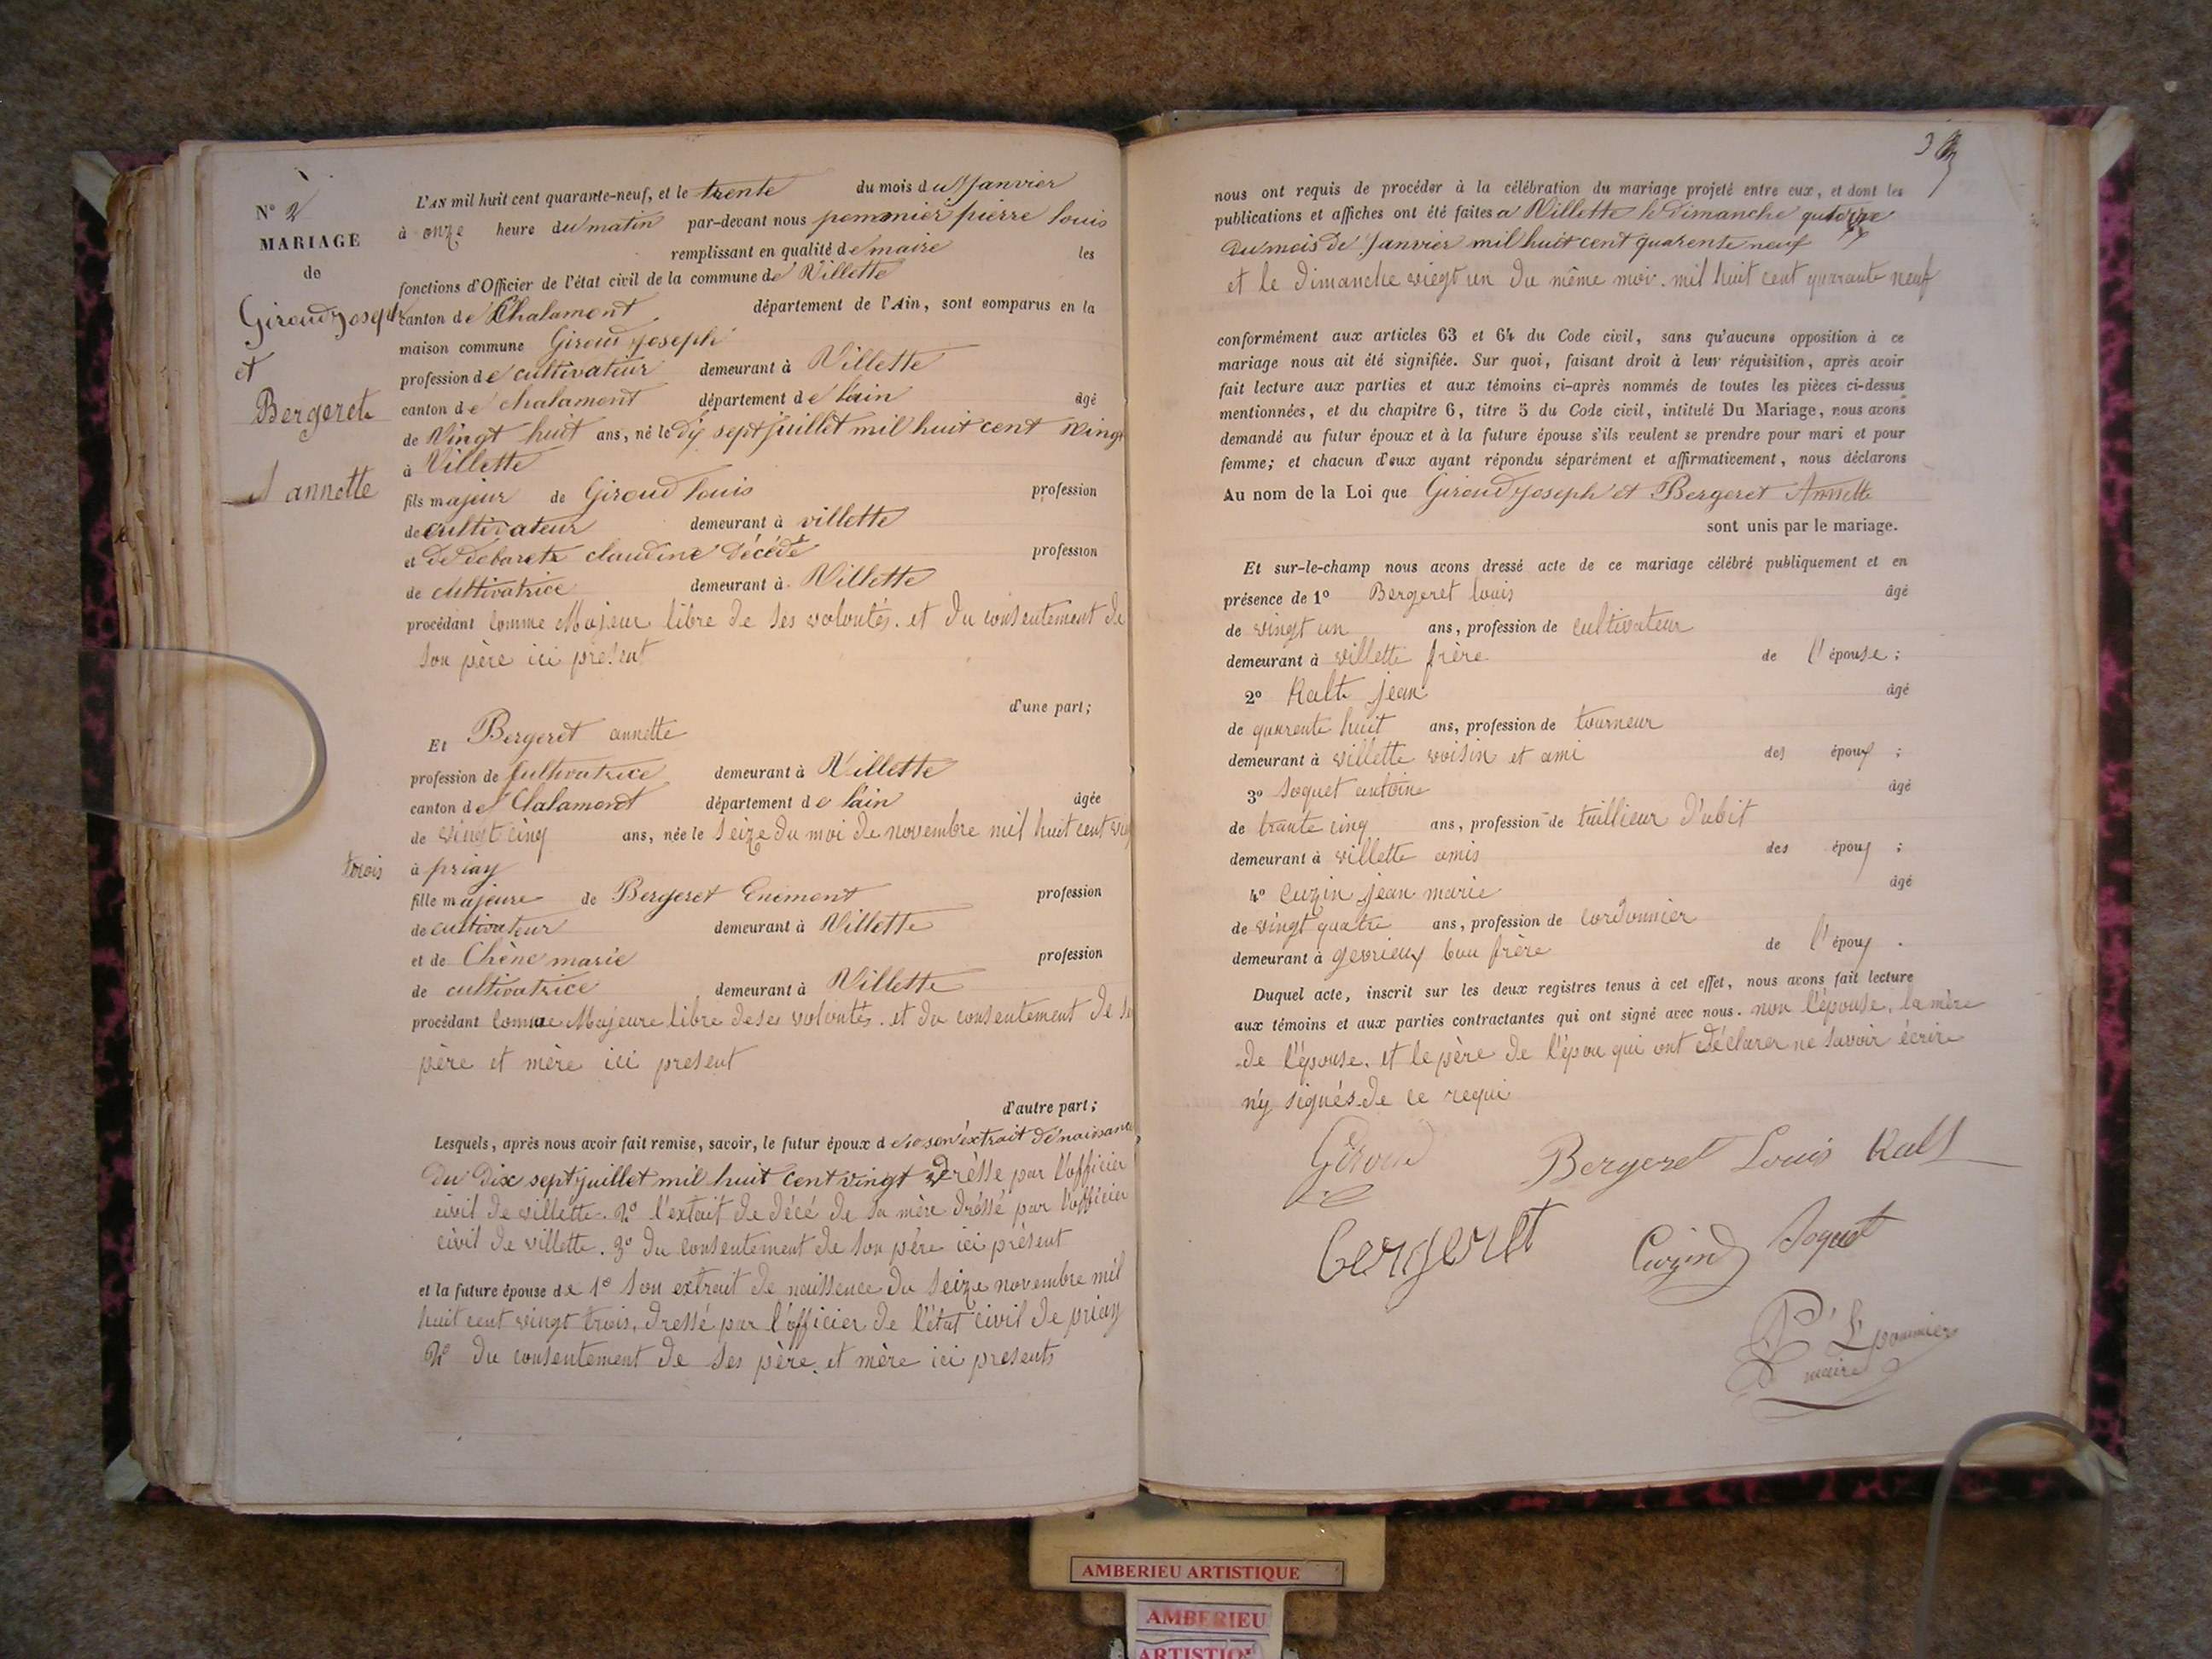 N° 2
MARIAGE
de
Giroud joseph
et
Bergeret
annette
L'AN mil huit cent quarante-neuf, et le trente du mois du Janvier
à onze heure du matin par-devant nous pommier pierre louis
remplissant en qualité de maire les
fonctions d'Officier de l'état civil de la commune de Villette
canton de Chalamont département de l'Ain, sont comparus en la
maison commune Giroud joseph
profession de cultivateur demeurant à Villette
canton de chalamont département de lain âgé
de Vingt huit ans, né le dix sept juillet mil huit cent vingt
à Villette
fils majeur de Giroud louis profession
de cultivateur demeurant à villette
et de debarete claudine décédé profession
de cultivatrice demeurant à Villette
procédant comme Majeur libre de ses volontés. et du consentement de
son père ici présent
d'une part;
Et Bergeret annette
profession de cultivatrice demeurant à Villette
canton de Chalamont département de lain âgée
de vingt cinq ans, née le seize du moi de novembre mil huit cent vingt
trois à priay
fille majeure de Bergeret Enemont profession
de cultivateur demeurant à Villette
et de Chêne marie profession
de cultivatrice demeurant à Villette
procédant comme Majeure libre de ses volontés. et du consentement de
père et mère ici present
d'autre part;
Lesquels, après nous avoir fait remise, savoir, le futur époux de 1° son extrait de naissance
du dix sept juillet mil huit cent vingt drésse par l'officier
civil de villette. 2° l'extait de décé de sa mère dréssé par l'officier
civil de villette. 3° du consentement de son père ici présent
et la future épouse de 1° son extrait de naissence du seize novembre mil
huit cent vingt trois, dressé par l'officier de l'état civil de priay
2° du consentement de ses père et mère ici presents
3
nous ont requis de procéder à la célébration du mariage projeté entre eux, et dont les
publications et affiches ont été faites a Villette le dimanche qutorze
du mois de Janvier mil huit cent quarente neuf
et le dimanche viegt un du même moi. mil huit cent quarante neuf
conformément aux articles 63 et 64 du Code civil, sans qu'aucune opposition à ce
mariage nous ait été signifiée. Sur quoi, faisant droit à leur réquisition, après avoir
fait lecture aux parties et aux témoins ci-après nommés de toutes les pièces ci-dessus
mentionnées, et du chapitre 6, titre 5 du Code civil, intitulé Du Mariage, nous avons
demandé au futur époux et à la future épouse s'ils veulent se prendre pour mari et pour
femme; et chacun d'eux ayant répondu séparément et affirmativement, nous déclarons
Au nom de la Loi que Giroud joseph et Bergeret Annette
sont unis par le mariage.
Et sur-le-champ nous avons dressé acte de ce mariage célébré publiquement et en
présence de 1° Bergeret louis âgé
de vingt un ans, profession de cultivateur
demeurant à villette frère de l'épouse;
2° Ralt jean âgé
de quarente huit ans, profession de tourneur
demeurant à villette voisin et ami des époux;
3° Soquet antoine âgé
de trante cinq ans, profession de taillieur d'abit
demeurant à villette amis des époux;
4° Cuzin jean marie âgé
de vingt quatre ans, profession de cordonnier
demeurant à gevrieux bau frère de l'époux.
Duquel acte, inscrit sur les deux registres tenus à cet effet, nous avons fait lecture
aux témoins et aux parties contractantes qui ont signé avec nous. non l'épouse, la mère
de l'épouse. et le père de l'épou qui ont déclarer ne savoir écrire
n'y signés de ce requi
Giroud
Bergeret Louis Ralt
bergeret
Cuzin Soquet
P. L. pommier
maire
AMBERIEU ARTISTIQUE
AMBERIEU